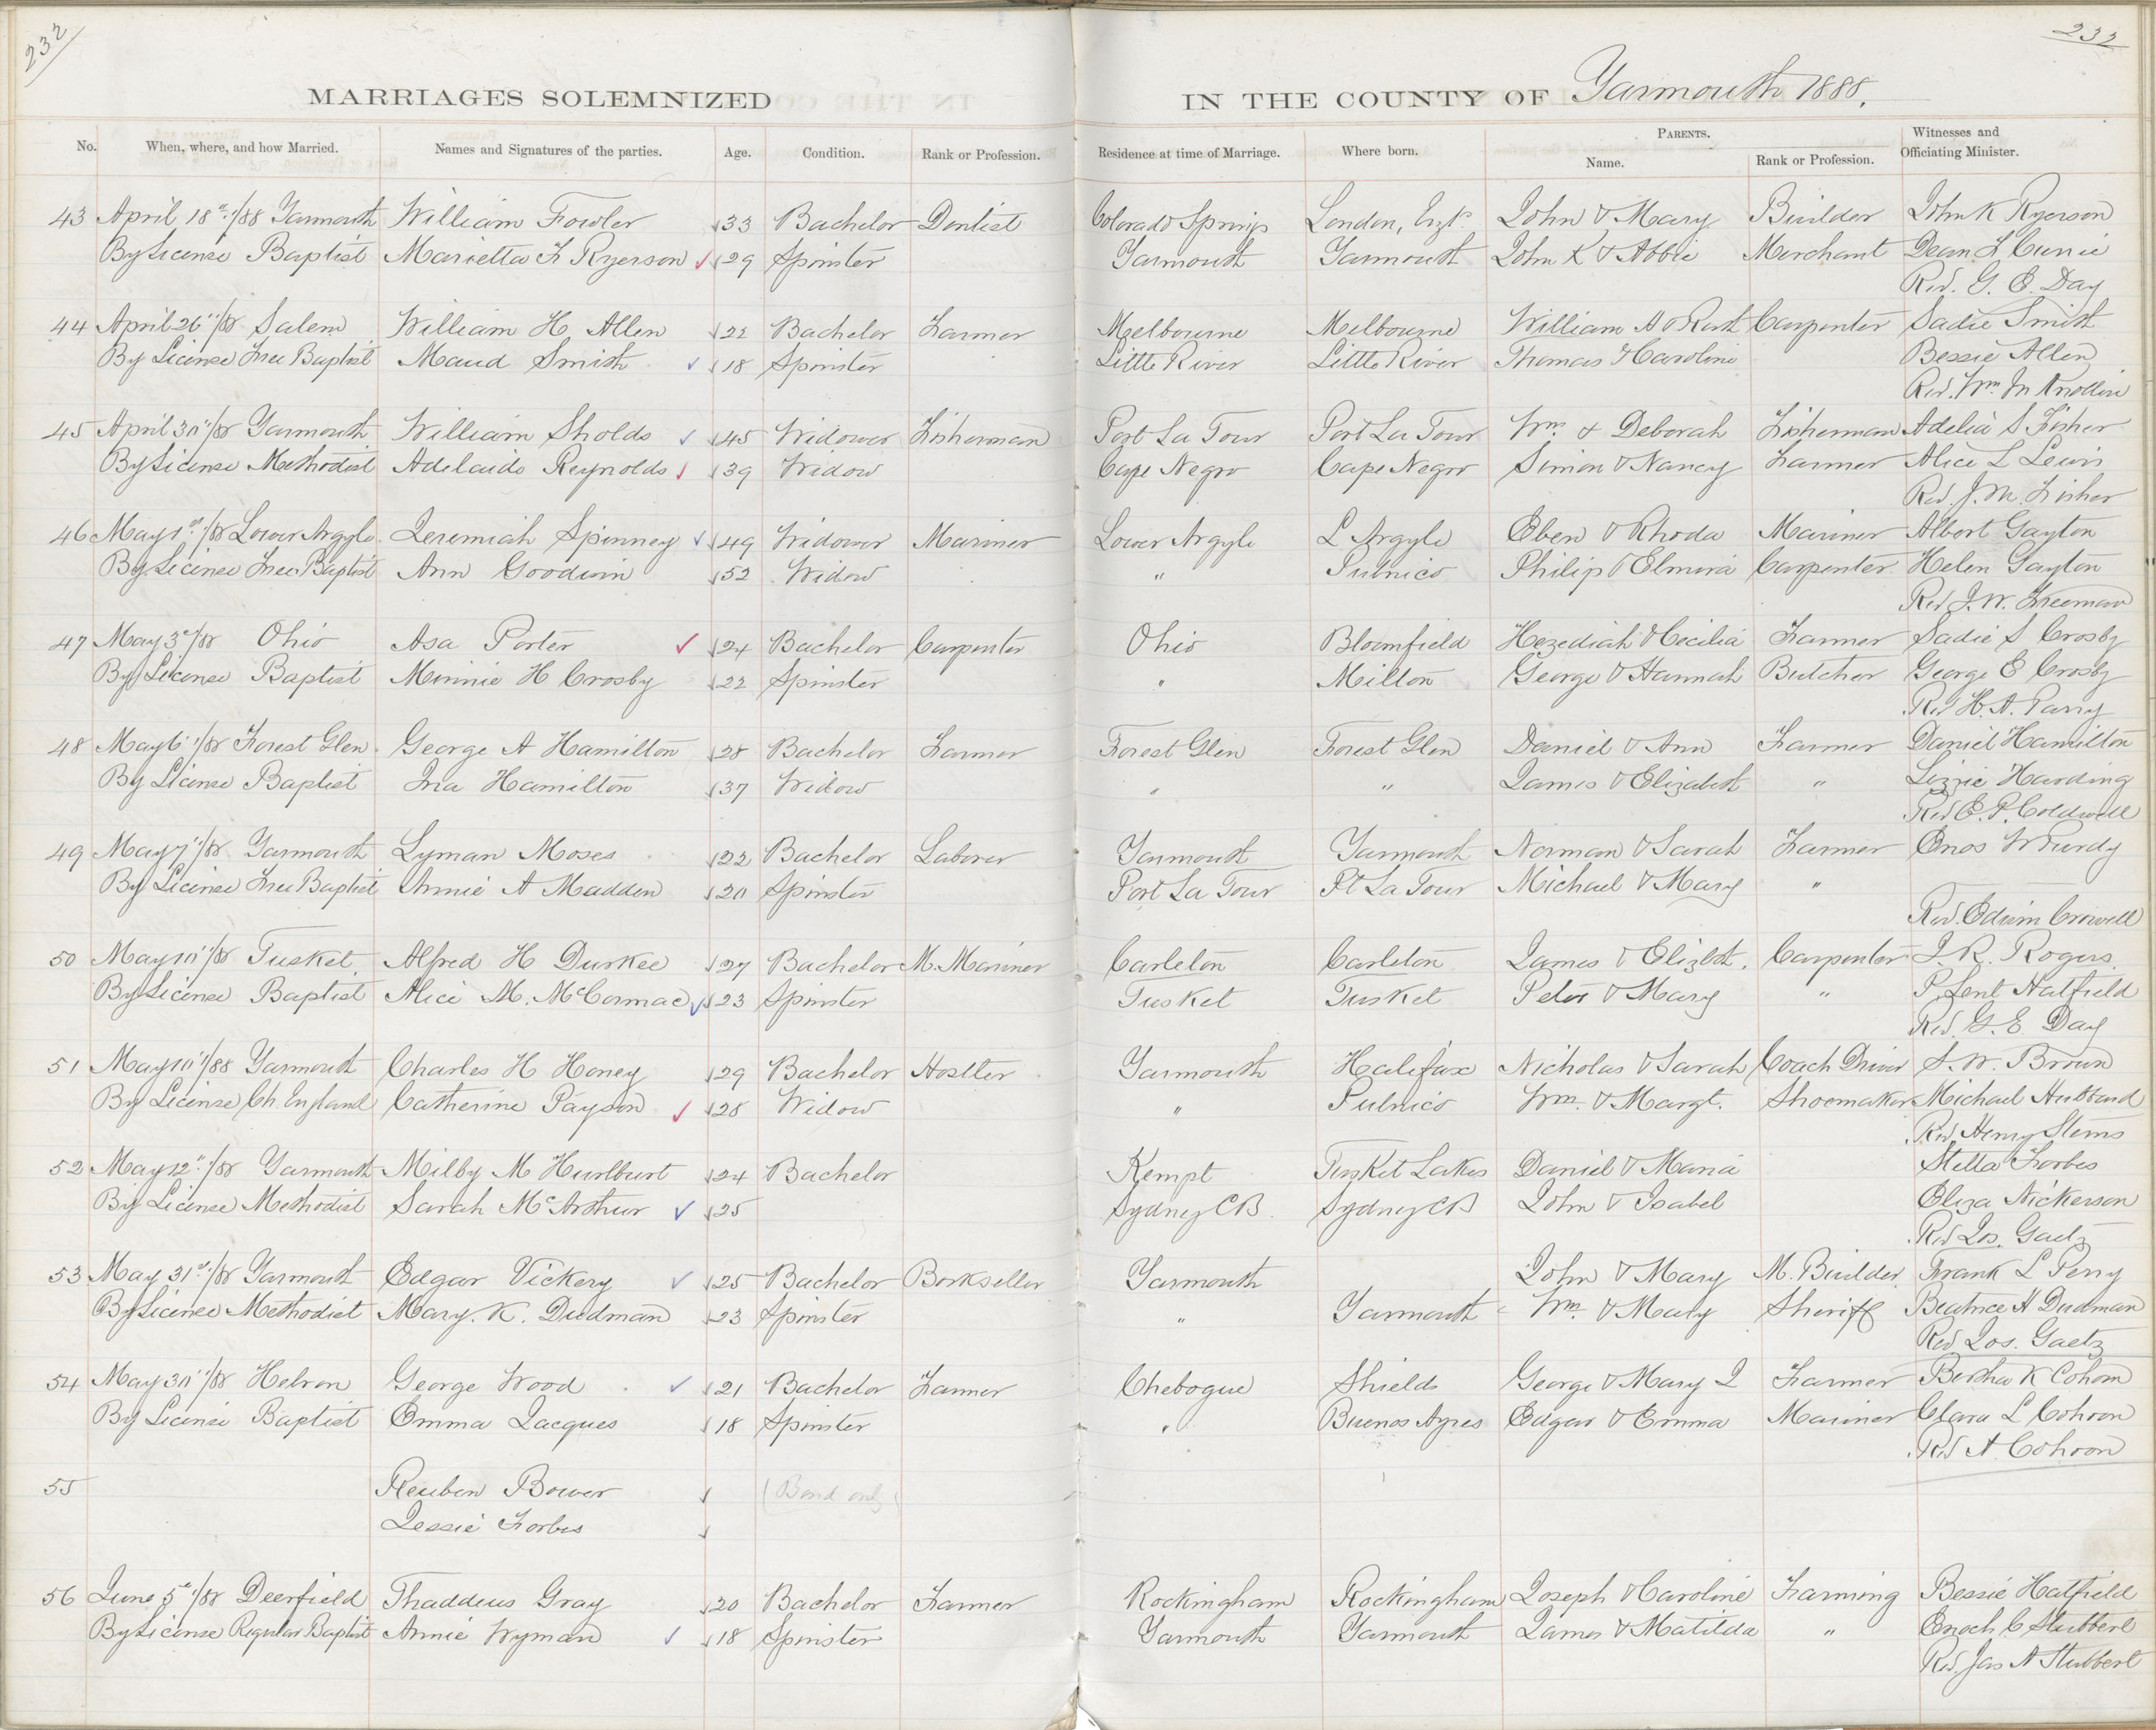 232
232
MARRIAGES SOLEMNIZED IN THE COUNTY OF Yarmouth 1888.
No. When, where, and how Married. Names and Signatures of the parties. Age. Condition. Rank or Profession. Residence at time of Marriage. Where born. PARENTS. Name. Rank or Profession. Witnesses and Officiating Minister.
43 April 18th/88 Yarmouth William Fowler 33 Bachelor Dentist Colorado Springs London, Engd. John & Mary Builder John K Ryerson
By License Baptist Marietta F Ryerson 29 Spinster Yarmouth Yarmouth John K & Abbie Merchant Dean F Currie
Rev. G. E. Day
44 April 26"/88 Salem William H. Allen 22 Bachelor Farmer Melbourne Melbourne William A & Ruth Carpenter Sadie Smith
By License Free Baptist Maud Smith 18 Spinster Little River Little River Thomas & Caroline Bessie Allen
Rev. Wm. M Knollin
45 April 30"/88 Yarmouth William Sholds 45 Widower Fisherman Port La Tour Port La Tour Wm. & Deborah Fisherman Adelia S Fisher
By License Methodist Adelaide Reynolds 39 Widow Cape Negro Cape Negro Simon & Nancy Farmer Alice L Lewis
Rev. J. M. Fisher
46 May 1st/88 Lower Argyle Jeremiah Spinney 49 Widower Mariner Lower Argyle L Argyle Eben & Rhoda Mariner Albert Gayton
By License Free Baptist Ann Goodwin 52 Widow " Pubnico Philip & Elmira Carpenter Helen Gayton
Rev J. W. Freeman
47 May 3d/88 Ohio Asa Porter 24 Bachelor Carpenter Ohio Bloomfield Hezediah & Cecilia Farmer Sadie S Crosby
By License Baptist Minnie H Crosby 22 Spinster " Milton George & Hannah Butcher George E Crosby
Rev H. A. Parry
48 May 6"/88 Forest Glen George A Hamilton 28 Bachelor Farmer Forest Glen Forest Glen Daniel & Ann Farmer Daniel Hamilton
By License Baptist Ina Hamilton 37 Widow " " James & Elizabeth " Lizzie Harding
Rev E. P. Coldwell
49 May 7"/88 Yarmouth Lyman Moses 22 Bachelor Laborer Yarmouth Yarmouth Norman & Sarah Farmer Enos W Purdy
By License Free Baptist Annie A Madden 20 Spinster Port La Tour Pt La Tour Michael & Mary "
Rev. Edwin Crowell
50 May 10"/88 Tusket Alfred H Durkee 27 Bachelor M. Mariner Carleton Carleton James & Elizbth. Carpenter J. R. Rogers
By License Baptist Alice M. McCormac 23 Spinster Tusket Tusket Peter & Mary " P. Lent Hatfield
Rev. G. E Day
51 May 10"/88 Yarmouth Charles H Honey 29 Bachelor Hostler Yarmouth Halifax Nicholas & Sarah Coach Driver S. W. Brown
By License Ch. England Catherine Payson 28 Widow " Pubnico Wm. & Margt. Shoemaker Michael Hubbard
Rev Henry Sterns
52 May 12"/88 Yarmouth Milby M Hurlburt 24 Bachelor Kempt Tusket Lakes Daniel & Maria Stella Forbes
By License Methodist Sarah McArthur 25 Sydney CB Sydney CB John & Isabel Eliza Nickerson
Rev Jos. Gaetz
53 May 31st/88 Yarmouth Edgar Vickery 25 Bachelor Bookseller Yarmouth John & Mary M. Builder Frank L Perry
By License Methodist Mary. K. Dudman 23 Spinster " Yarmouth Wm. & Mary Sheriff Beatrice H Dudman
Rev Jos. Gaetz
54 May 30"/88 Hebron George Wood 21 Bachelor Farmer Chebogue Shields George & Mary J Farmer Bertha K Cohoon
By License Baptist Emma Jacques 18 Spinster " Buenos Ayres Edgar & Emma Mariner Clara L Cohoon
Rev A Cohoon
55 Reuben Bower (Bond only)
Jessie Forbes
56 June 5th/88 Deerfield Thaddeus Gray 20 Bachelor Farmer Rockingham Rockingham Joseph & Caroline Farming Bessie Hatfield
By License Regular Baptist Annie Wyman 18 Spinster Yarmouth Yarmouth James & Matilda " Enoch C Stubbert
Rev. Jas A Stubbert